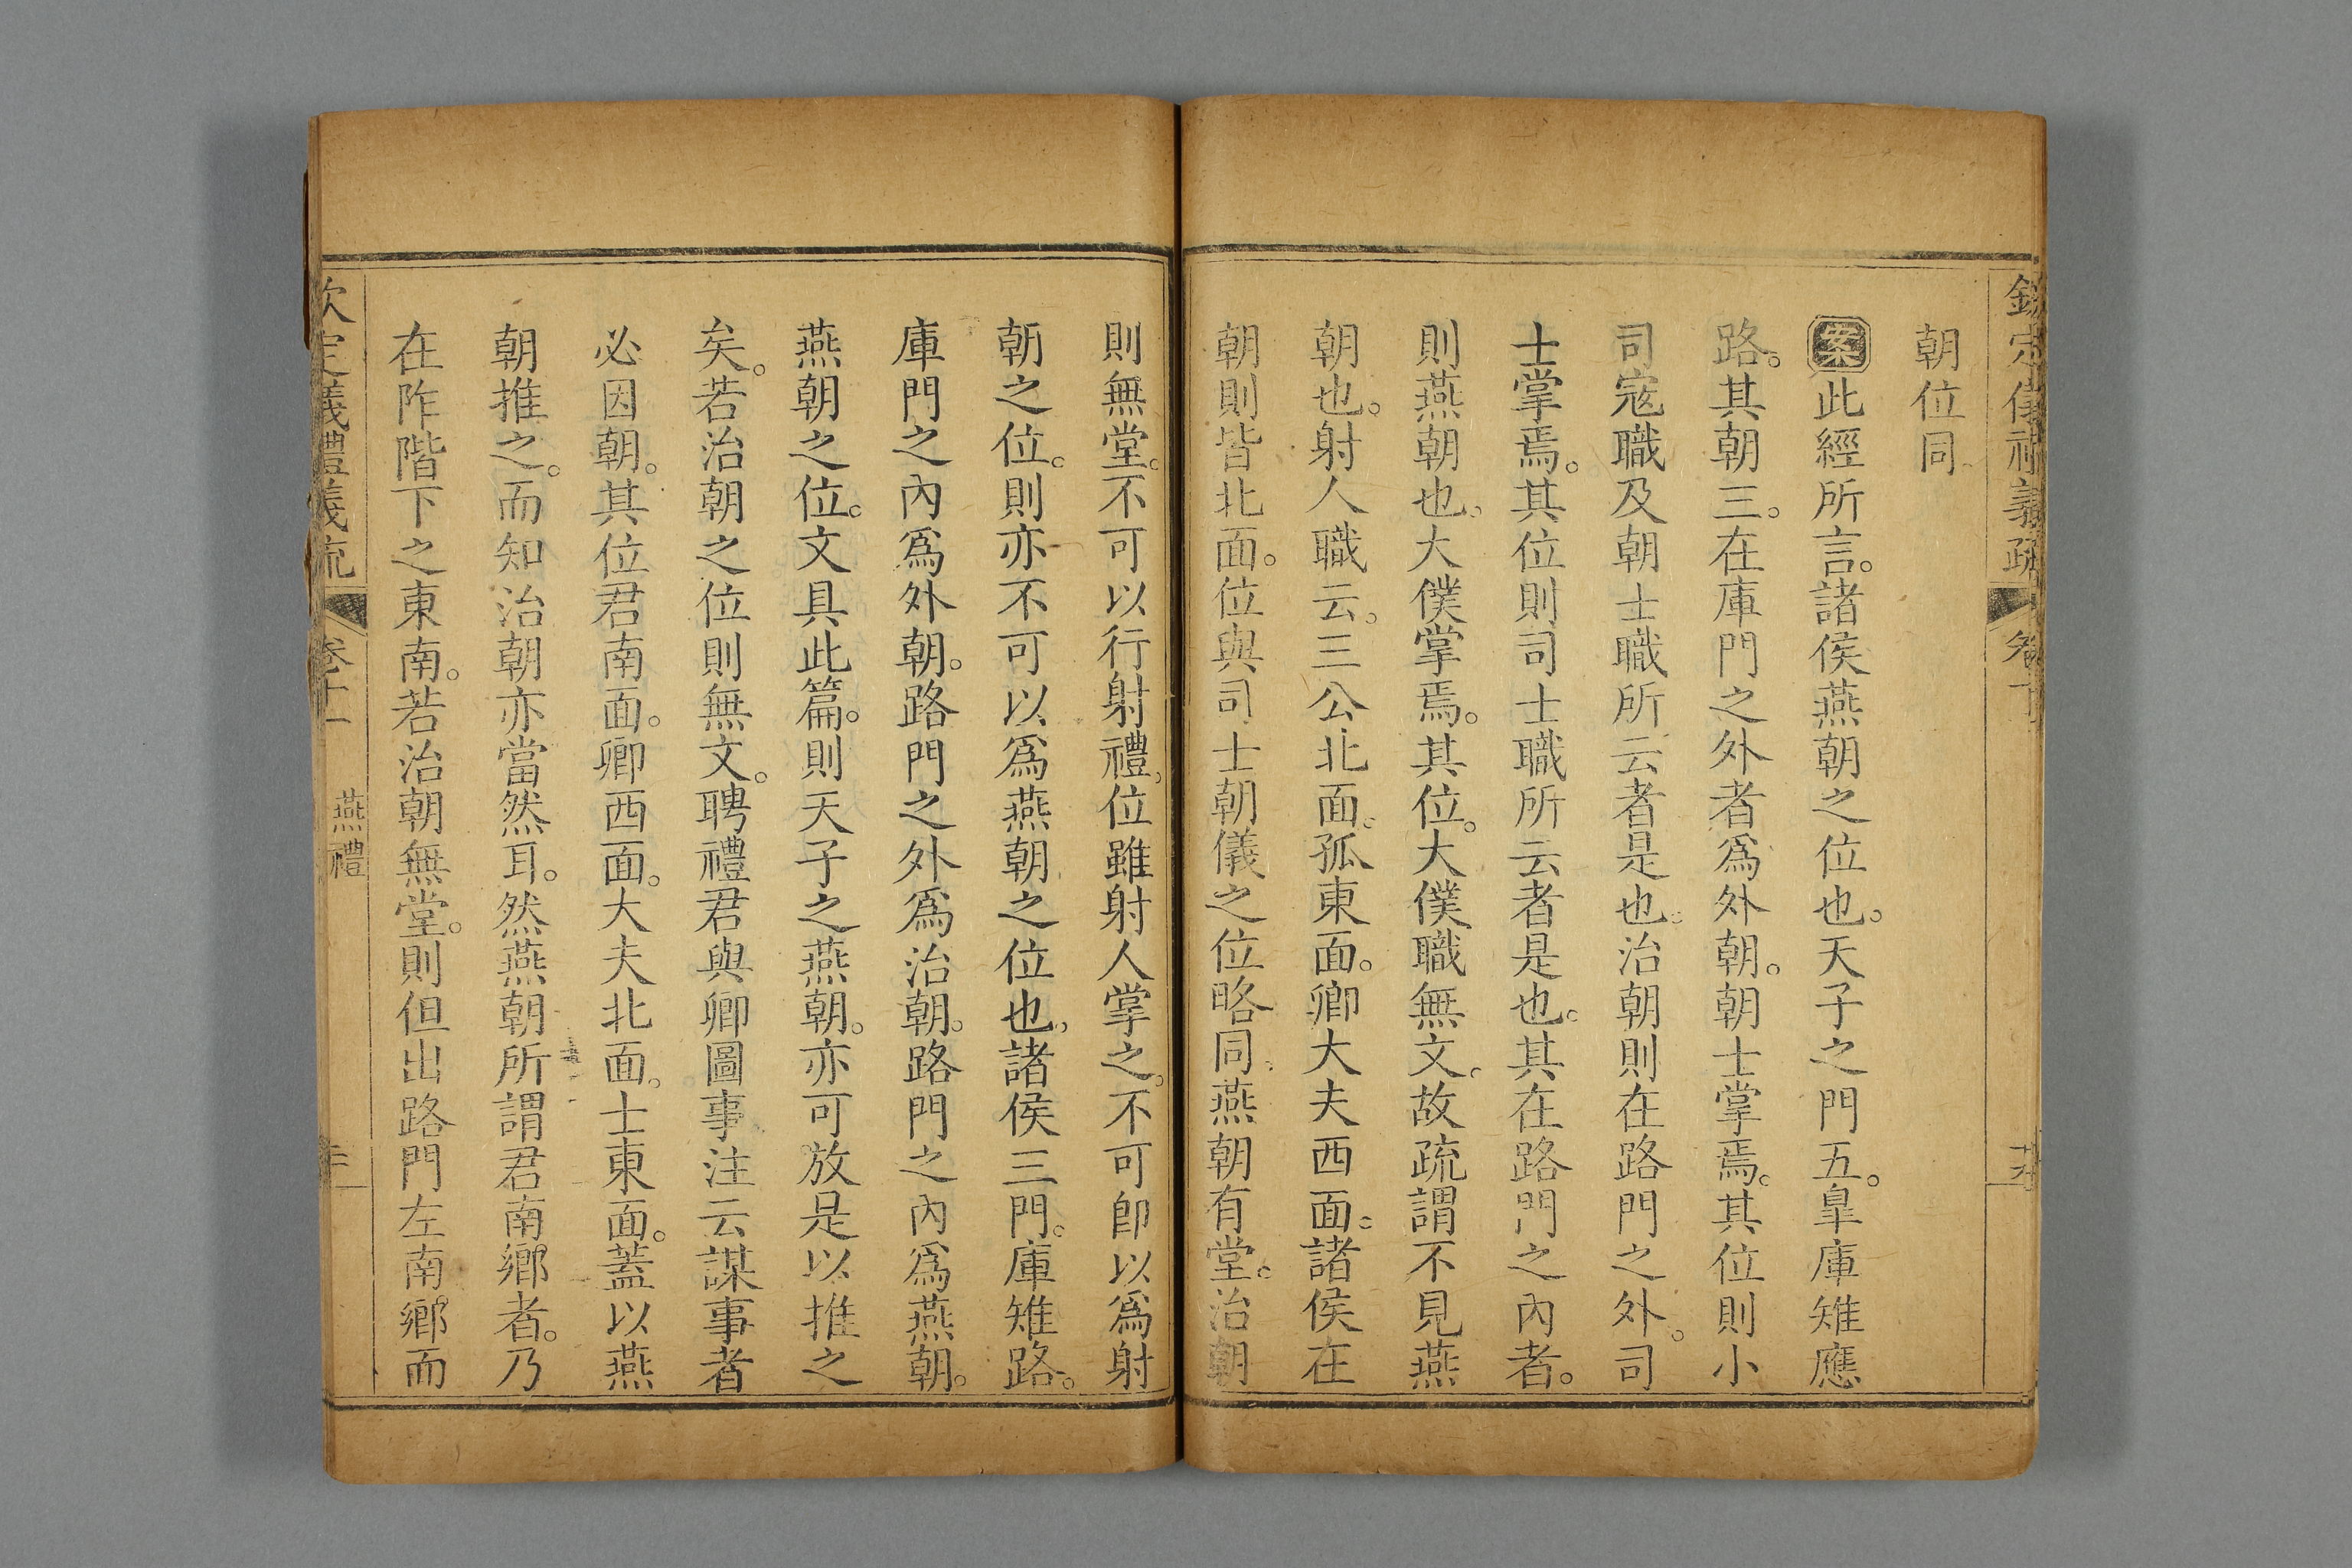 朝位同
案此經所言。諸侯燕朝之位也。天子之門五。皐庫雉應
路。其朝三。在庫門之外者爲外朝。朝士掌焉。其位則小
司寇職及朝士職所云者是也。治朝則在路門之外。司
士掌焉。其位則司士職所云者是也。其在路門之內者。
則燕朝也。大僕掌焉。其位。大僕職無文。故疏謂不見燕
朝也。射人職云。三公北面。孤東面。卿大夫西面。諸侯在
朝則皆北面。位與司士朝儀之位略同。燕朝有堂。治朝
則無堂。不可以行射禮。位雖射人掌之。不可卽以爲射
朝之位。則亦不可以爲燕朝之位也。諸侯三門。庫雉路。
庫門之內爲外朝。路門之外爲治朝。路門之內爲燕朝。
燕朝之位。文具此篇。則天子之燕朝。亦可放是以推之
矣。若治朝之位則無文。聘禮君與卿圖事注云謀事者
必因朝。其位君南面。卿西面。大夫北面。士東面。蓋以燕
朝推之。而知治朝亦當然耳。然燕朝所謂君南鄉者。乃
在阼階下之東南。若治朝無堂。則但出路門左南鄉而
欽定儀禮義疏
卷十一
燕禮